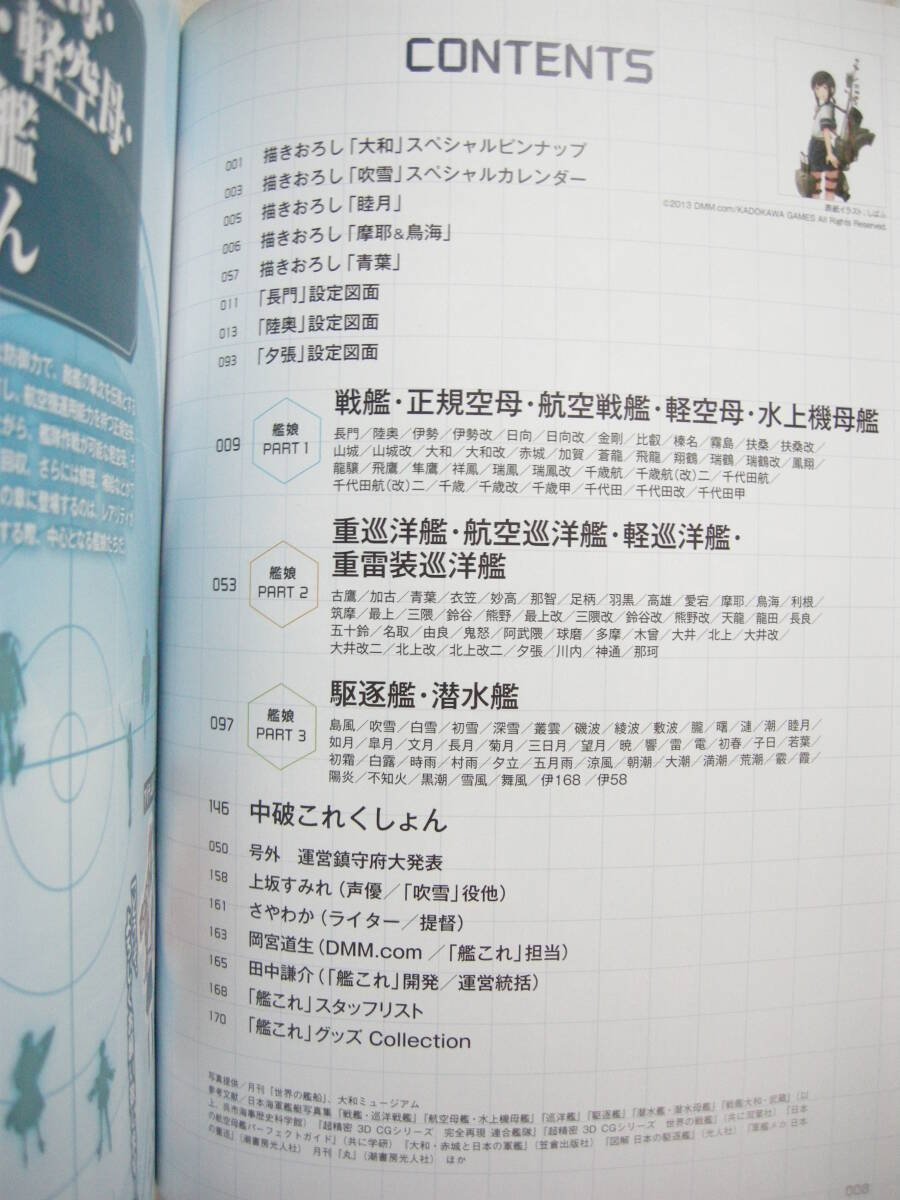 ・軽空母・
艦
ん
CONTENTS
表紙イラスト：しばふ
©2013 DMM.com/KADOKAWA GAMES All Rights Reserved.
001 描きおろし「大和」スペシャルピンナップ
003 描きおろし「吹雪」スペシャルカレンダー
005 描きおろし「睦月」
006 描きおろし「摩耶&鳥海」
057 描きおろし「青葉」
011 「長門」設定図面
013 「陸奥」設定図面
093 「夕張」設定図面
009 艦娘 PART 1
戦艦・正規空母・航空戦艦・軽空母・水上機母艦
長門／陸奥／伊勢／伊勢改／日向／日向改／金剛／比叡／榛名／霧島／扶桑／扶桑改／
山城／山城改／大和／大和改／赤城／加賀／蒼龍／飛龍／翔鶴／瑞鶴／瑞鶴改／鳳翔／
龍驤／飛鷹／隼鷹／祥鳳／瑞鳳／瑞鳳改／千歳航／千歳航（改）二／千代田航／
千代田航（改）二／千歳／千歳改／千歳甲／千代田／千代田改／千代田甲
053 艦娘 PART 2
重巡洋艦・航空巡洋艦・軽巡洋艦・
重雷装巡洋艦
古鷹／加古／青葉／衣笠／妙高／那智／足柄／羽黒／高雄／愛宕／摩耶／鳥海／利根／
筑摩／最上／三隈／鈴谷／熊野／最上改／三隈改／鈴谷改／熊野改／天龍／龍田／長良／
五十鈴／名取／由良／鬼怒／阿武隈／球磨／多摩／木曾／大井／北上／大井改／
大井改二／北上改／北上改二／夕張／川内／神通／那珂
097 艦娘 PART 3
駆逐艦・潜水艦
島風／吹雪／白雪／初雪／深雪／叢雲／磯波／綾波／敷波／朧／曙／漣／潮／睦月／
如月／皐月／文月／長月／菊月／三日月／望月／暁／響／雷／電／初春／子日／若葉／
初霜／白露／時雨／村雨／夕立／五月雨／涼風／朝潮／大潮／満潮／荒潮／霰／霞／
陽炎／不知火／黒潮／雪風／舞風／伊168／伊58
146 中破これくしょん
050 号外　運営鎮守府大発表
158 上坂すみれ（声優／「吹雪」役他）
161 さやわか（ライター／提督）
163 岡宮道生（DMM.com／「艦これ」担当）
165 田中謙介（「艦これ」開発／運営統括）
168 「艦これ」スタッフリスト
170 「艦これ」グッズ Collection
写真提供／月刊『世界の艦船』、大和ミュージアム
参考文献／日本海軍艦艇写真集『戦艦・巡洋戦艦』『航空母艦・水上機母艦』『巡洋艦』『駆逐艦』『潜水艦・潜水母艦』『戦艦大和・武蔵』（以
上、呉市海事歴史科学館）『超精密 3D CGシリーズ　完全再現 連合艦隊』『超精密 3D CGシリーズ　世界の戦艦』（共に双葉社）『日本
の航空母艦パーフェクトガイド』（共に学研）『大和・赤城と日本の軍艦』（笠倉出版社）『図解 日本の駆逐艦』（光人社）『軍艦メカ 日本
の重巡』（潮書房光人社）　月刊『丸』（潮書房光人社）　ほか
008